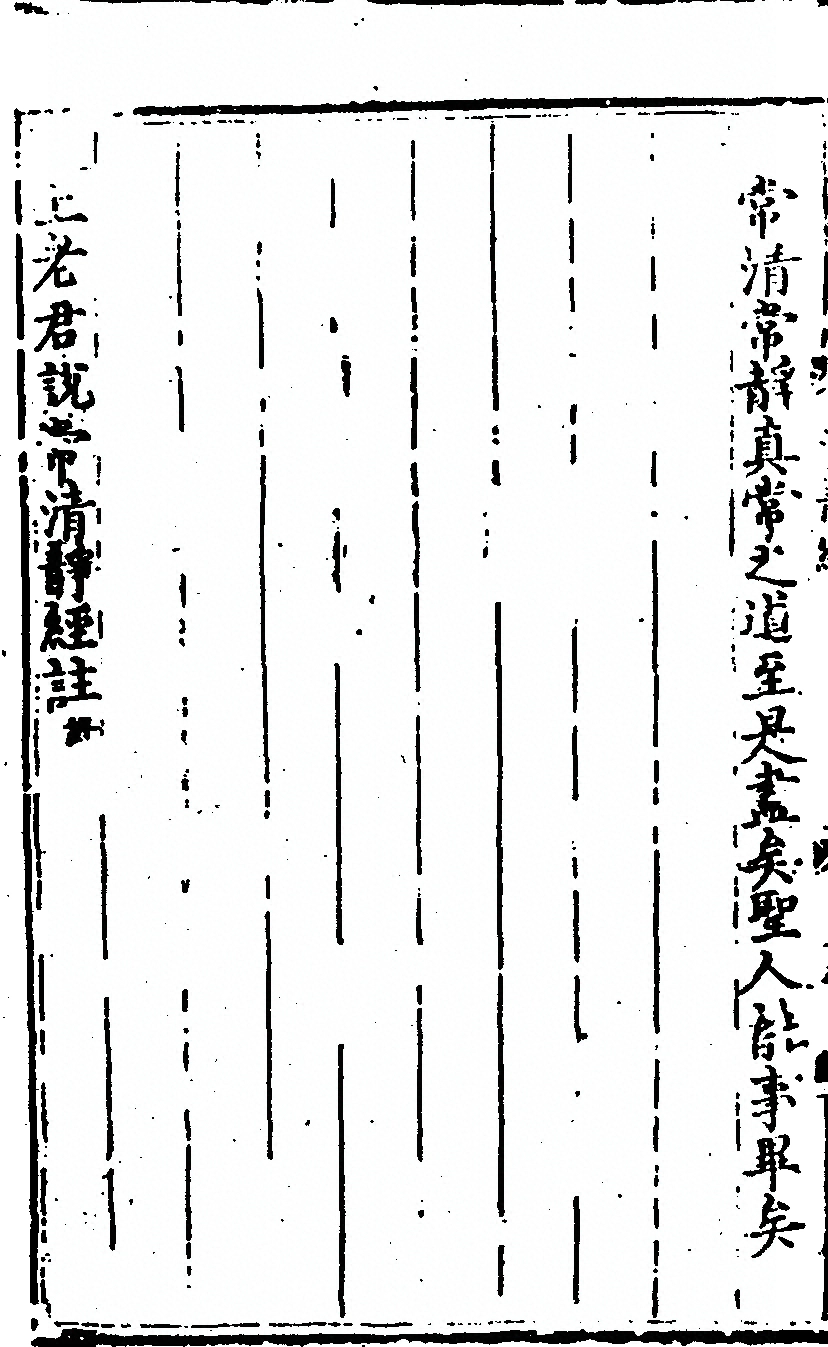 常清常靜真常之道至是盡矣聖人能事畢矣
上老君說常清靜經註